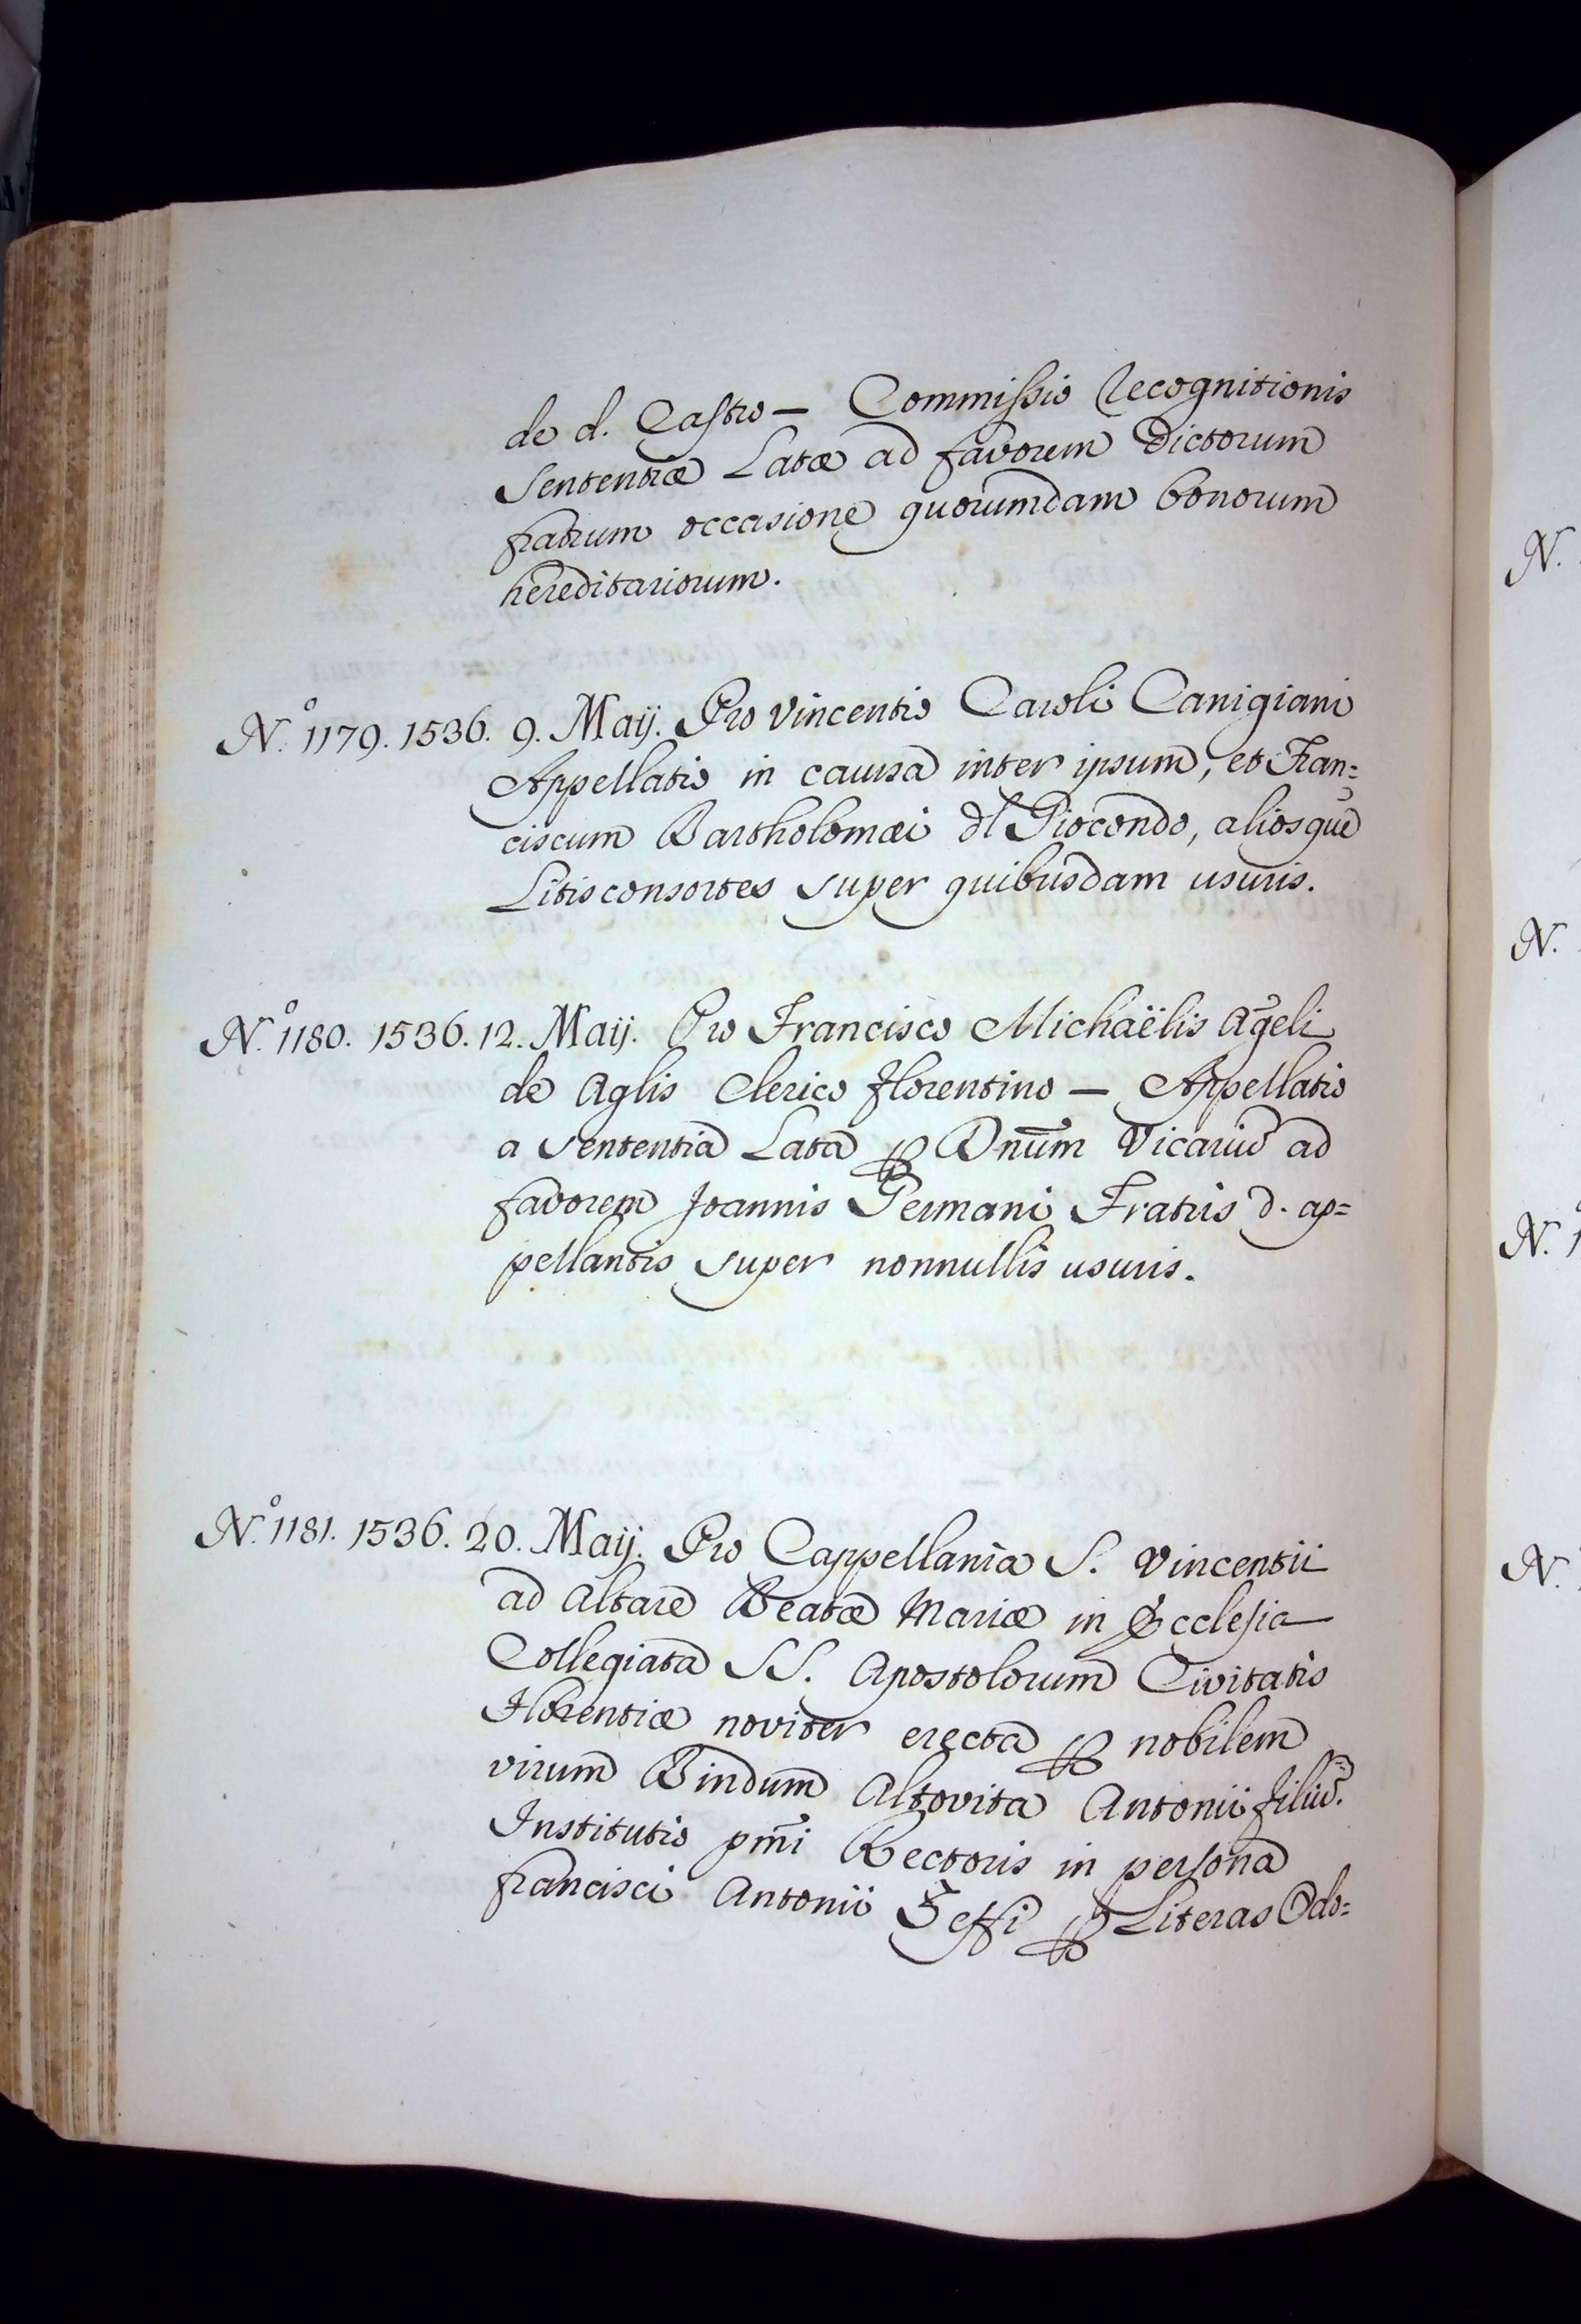 de d. Castro — Commissio Recognitionis
Sententiæ Latæ ad favorem Dictorum
fratrum occasione quorumdam bonorum
hereditariorum.
N.º 1179. 1536. 9. Maij. Pro Vincentio Caroli Canigiani
Appellatio in causa inter ipsum, et Fran=
ciscum Bartholomæi dl Giocondo, aliosque
Litisconsortes super quibusdam usuris.
N.º 1180. 1536. 12. Maij. Pro Francisco Michaëlis Ageli
de Aglis Clerico Florentino — Appellatio
a Sententia Lata ꝑ Dnum Vicariū ad
favorem Joannis Germani Fratris d. ap=
pellantis super nonnullis usuris.
N.º 1181. 1536. 20. Maij. Pro Cappellania S. Vincentii
ad Altare Beatæ Mariæ in Ecclesia
Collegiata SS. Apostolorum Civitatis
Florentiæ noviter erecta ꝑ nobilem
virum Bindum Altovita Antonii filiū.
Institutio pm̃i Rectoris in persona
Francisci Antonii Zeffi ꝑ Literas Odo=
N.
N.
N. 1
N.